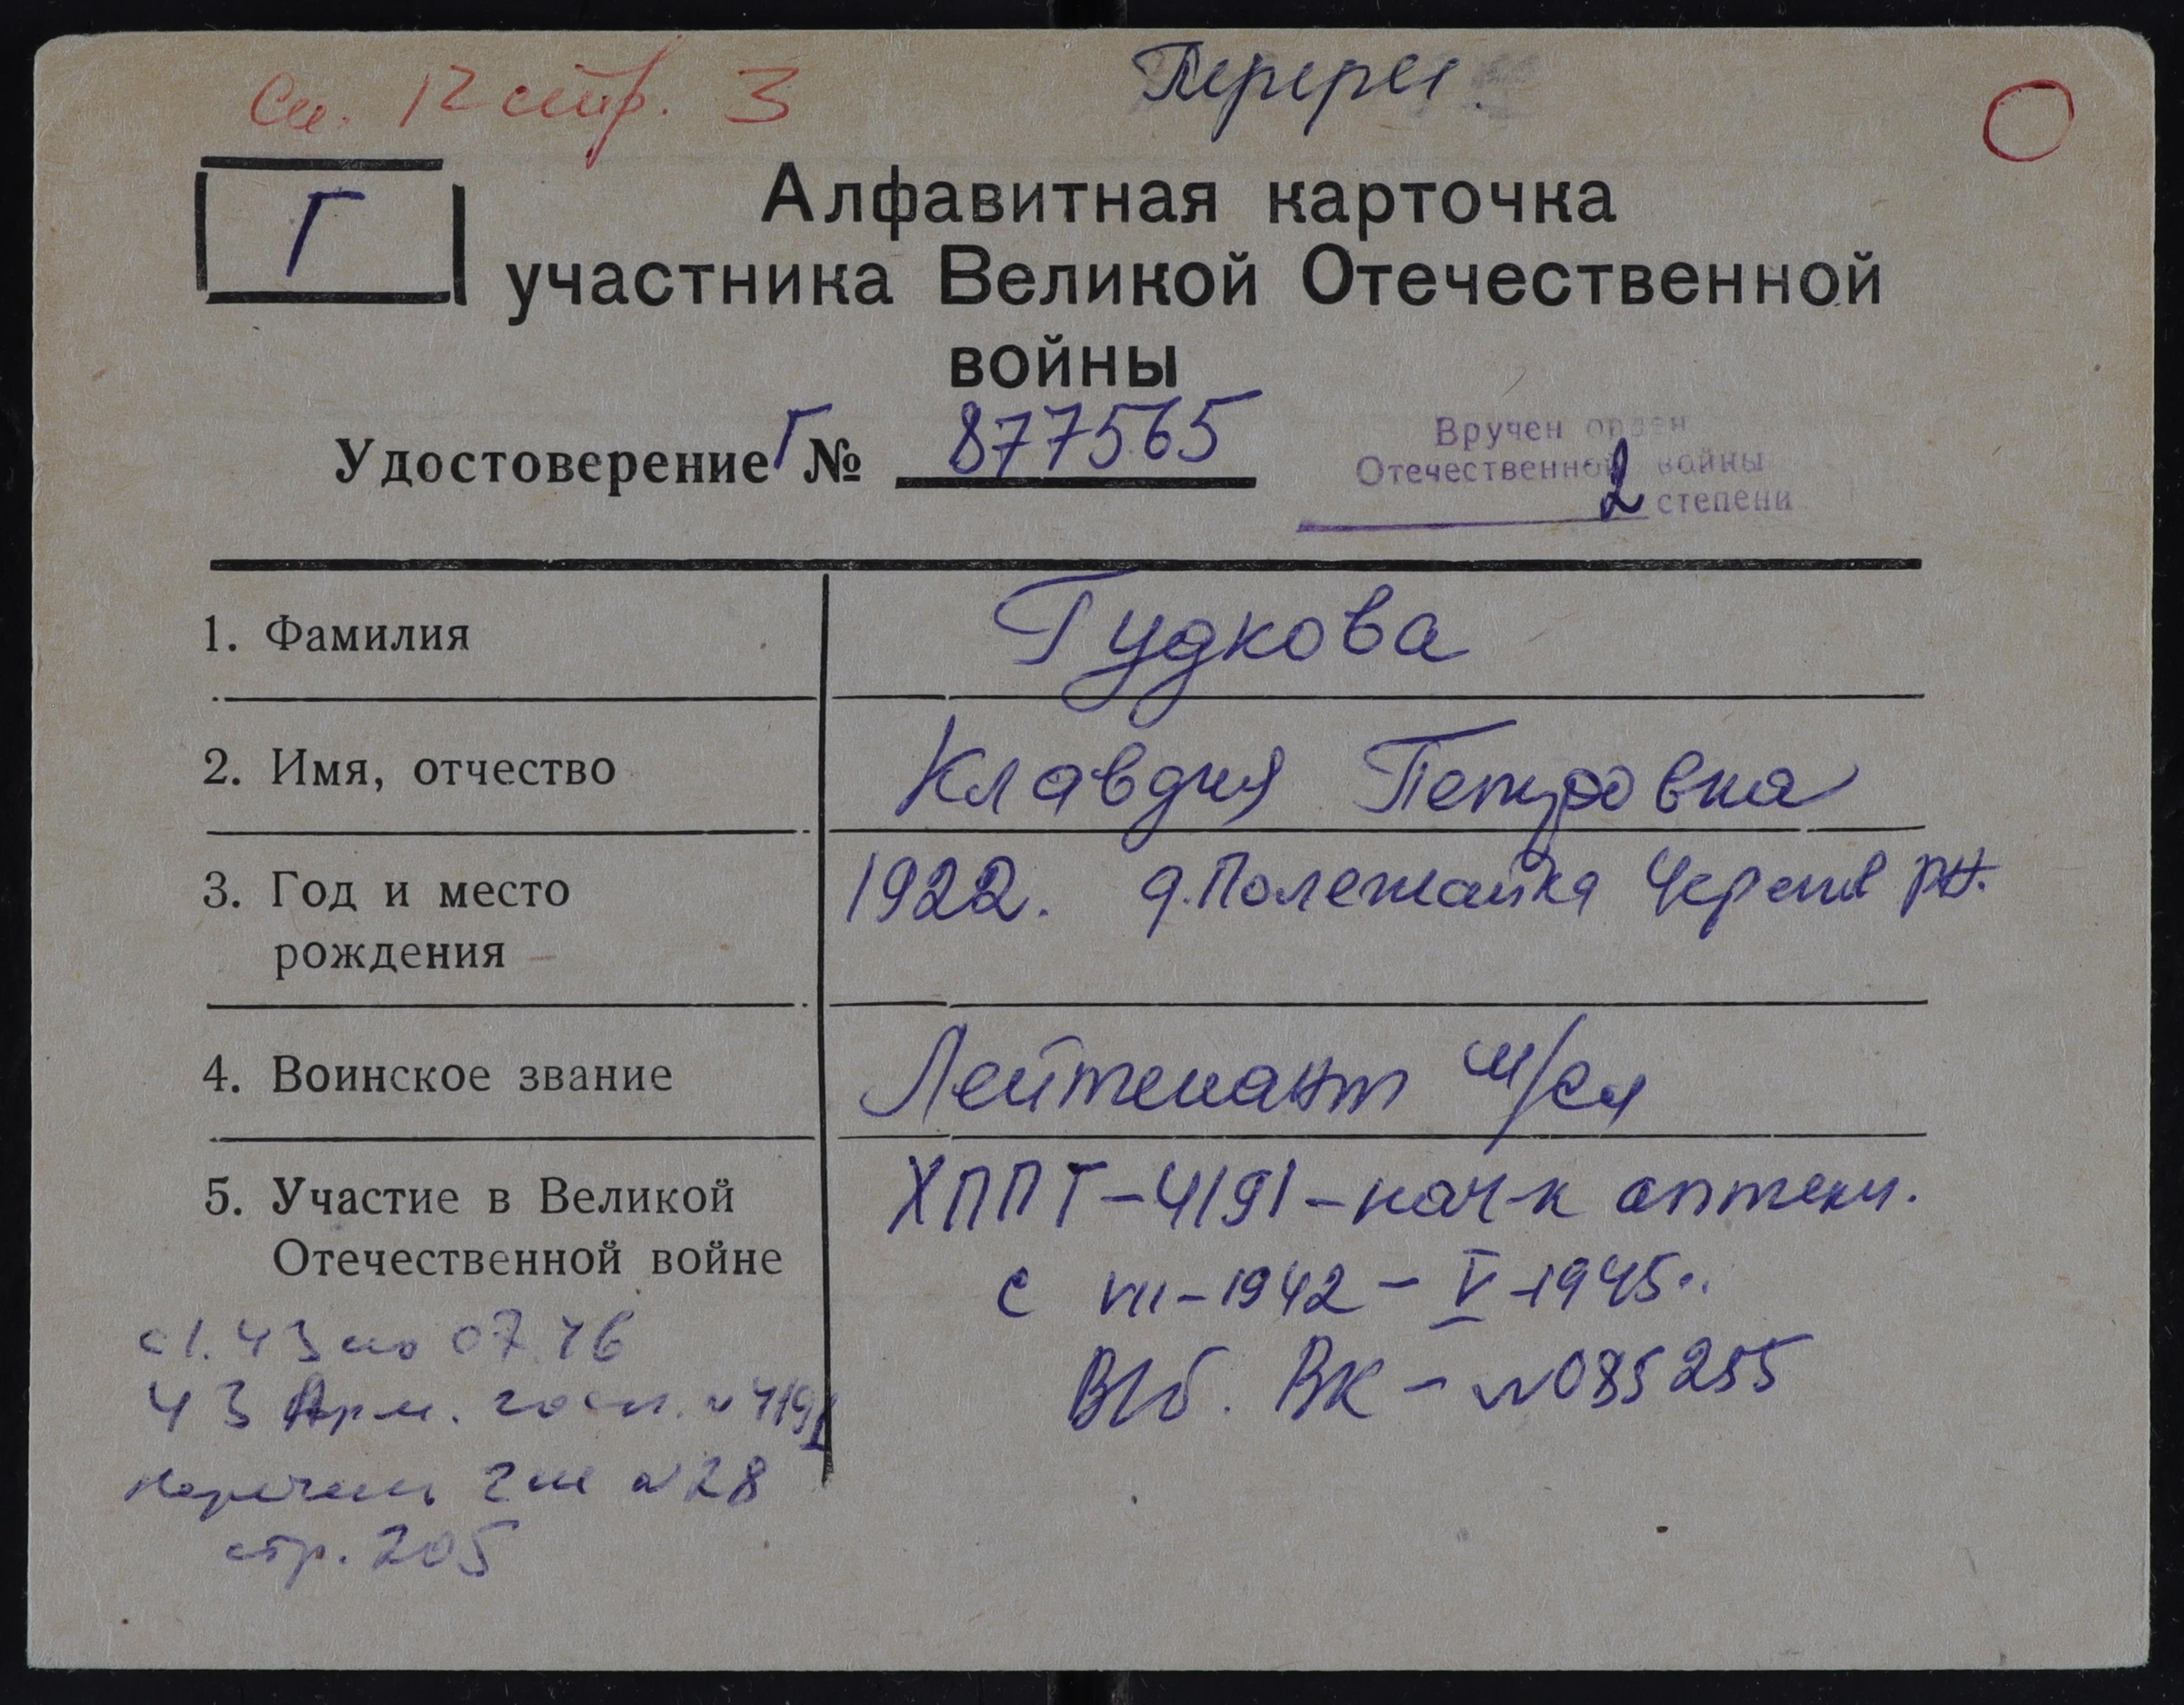 См. 12 стр. 3
Перерег.
Г
Алфавитная карточка
участника Великой Отечественной
войны
Удостоверение Г № 877565
Вручен орден
Отечественной войны
2 степени
1. Фамилия
Гудкова
2. Имя, отчество
Клавдия Петровна
3. Год и место
рождения
1922. д. Полежайка Черепов рн.
4. Воинское звание
Лейтенант м/сл
5. Участие в Великой
Отечественной войне
ХППГ-4191-нач-к аптеки.
с VII-1942 - V-1945.
ВУб. ВК - №085255
с 1.43 по 07.46
43 Арм. госп. №4191
Перечень гш №28
стр. 205